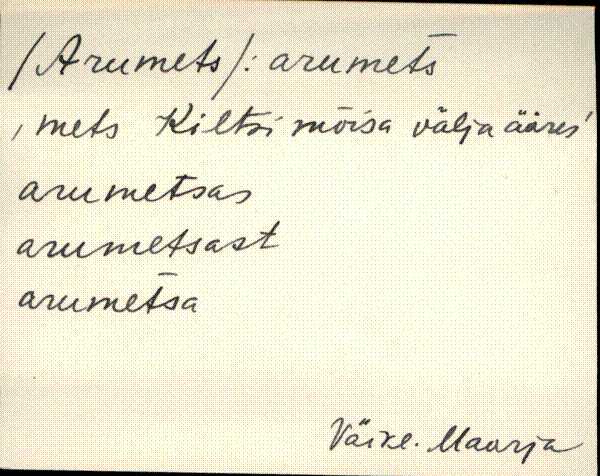 /Arumets/: arumet̄s
, mets Kiltsi mõisa välja ääres'
arumetsas
arumetsast
arumet̄sa
Väike-Maarja